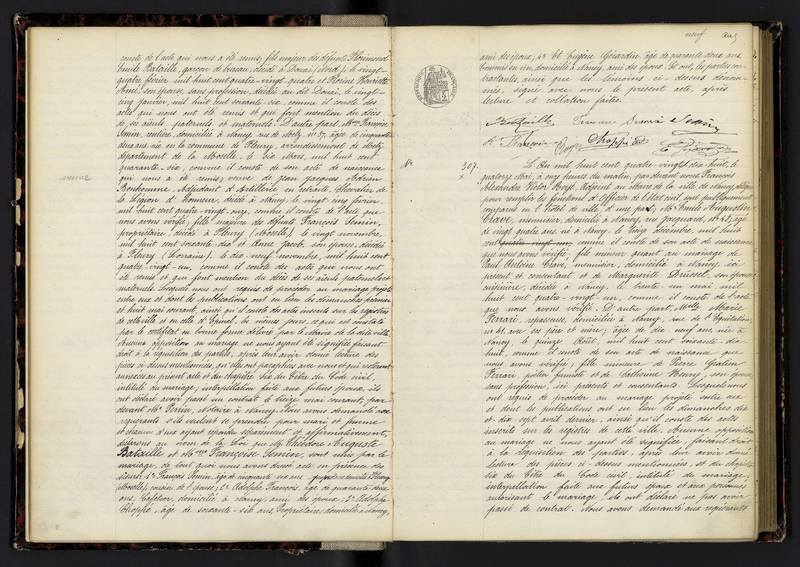 conste de l'acte qui nous a été remis, fils majeur des défunts
Emile Bataille, garçon de bureau, décédé à Douai (Nord), le vingt-
quatre février mil huit cent quatre-vingt-quatre et Florine Henriette
son épouse, sans profession, décédée au dit Douai, le vingt-
cinq janvier, mil huit cent soixante-six, comme il conste des
actes qui nous ont été remis et qui font mention du décès
de ses aïeuls paternels et maternels. D'autre part, Mme Françoise
Simin, rentière, domiciliée à Nancy, rue de Metz, No 37, âgée de cinquante
deux ans, née en la commune de Fleury, arrondissement de Metz,
département de la Moselle, le dix Mars, mil huit cent
quarante-six, comme il conste de son acte de naissance
qui nous a été remis, veuve de Jean Jacques Adrien
Bonhomme, Adjudant d'Artillerie en retraite, Chevalier de
la Légion d'Honneur, décédé à Nancy, le vingt cinq février,
mil huit cent quatre-vingt-onze, comme il conste de l'acte que
nous avons vérifié; fille majeure de défunts François Simin,
propriétaire, décédé à Fleury (Moselle), le vingt novembre,
mil huit cent soixante dix et Anne Jacob, son épouse, décédée
à Fleury (Lorraine), le dix-neuf novembre, mil huit cent
quatre-vingt-un, comme il conste des actes qui nous ont
été remis et qui font mention du décès de ses aïeuls paternels et
maternels. Lesquels nous ont requis de procéder au mariage projeté
entre eux et dont les publications ont eu lieu les dimanches premier
et huit mai courant, ainsi qu'il conste des actes inscrits sur les registres
de cette ville et en celle d'Epinal, les mêmes jours, ce qui est constaté
par le certificat en bonne forme délivré par le Maire de la dite ville.
Aucune opposition au mariage ne nous ayant été signifiée, faisant
droit à la réquisition des parties, après leur avoir donné lecture des
pièces ci-dessus mentionnées, qu'elles ont paraphées avec nous et qui resteront
annexées au présent acte et du chapitre six du titre du Code civil,
intitulé du mariage, interpellation faite aux futurs époux, ils
ont déclaré avoir passé un contrat le treize mai courant, par
devant Me Perrin, Notaire à Nancy. Nous avons demandé aux
requérants s'ils veulent se prendre pour mari et femme
et chacun d'eux ayant répondu séparément et affirmativement,
déclarons au nom de la Loi que M. Théodore Auguste
Bataille et Mme Françoise Simin, sont unis par le
mariage, de tout quoi nous avons dressé acte en présence des
sieurs: 1° François Simin, âgé de quarante six ans, domicilié à Fleury
(Moselle), cousin de l'épouse; 2° Adolphe François, âgé de quarante-deux
ans, Cafetier, domicilié à Nancy, ami des époux; 3° Adolphe
Choppé, âgé de soixante-six ans, Propriétaire, domicilié à Nancy,
neuf
ami des époux, 4° et Eugène Girardin, âgé de quarante deux ans,
domicilié à Nancy, ami des époux. Et ont, les parties con-
tractantes, ainsi que les témoins ci-dessus dénom-
més, signé avec nous le présent acte, après
lecture et collation faites.
Bataille
A François
Choppé
No 307.
L'An mil huit cent quatre-vingt-dix-huit, le
quatorze Mai, à onze heures du matin, par devant nous François
Alexandre Victor Boyé, Adjoint au Maire de la ville de Nancy, délégué
pour remplir les fonctions d'Officier de l'état civil, ont publiquement
comparu en l'Hôtel de ville, d'une part, Mr Emile Augustin
Crave, menuisier, domicilié à Nancy, rue Jacquard, No 47, âgé
de vingt quatre ans, né à Nancy, le treize décembre, mil huit
cent quatre vingt un, comme il conste de son acte de naissance
que nous avons vérifié, fils mineur quant au mariage de
Paul Antoine Crave, menuisier, domicilié à Nancy, ici
présent et consentant et de Marguerite Driesel, son épouse,
cuisinière, décédée à Nancy, le trente-un mai, mil
huit cent quatre-vingt-un, comme il conste de l'acte
que nous avons vérifié. D'autre part, Melle Marie
Ferrari, repasseuse, domiciliée à Nancy, rue de l'Équitation,
No 41, avec ses père et mère; âgée de dix-neuf ans, née à
Nancy, le quinze Août, mil huit cent soixante-dix-
huit, comme il conste de son acte de naissance que
nous avons vérifié; fille mineure de Pierre Gratien
Ferrari, poëlier fumiste, et de Catherine Houry, son épouse,
sans profession, ici présents et consentants. Lesquels nous
ont requis de procéder au mariage projeté entre eux
et dont les publications ont eu lieu les dimanches dix
et dix sept avril dernier, ainsi qu'il conste des actes
inscrits sur les registres de cette ville. Aucune opposition
au mariage ne nous ayant été signifiée, faisant droit
à la réquisition des parties, après leur avoir donné
lecture des pièces ci-dessus mentionnées, et du chapitre
six du titre du Code civil, intitulé du mariage,
interpellation faite aux futurs époux et aux personnes
autorisant le mariage, ils ont déclaré ne pas avoir
passé de contrat. Nous avons demandé aux requérants